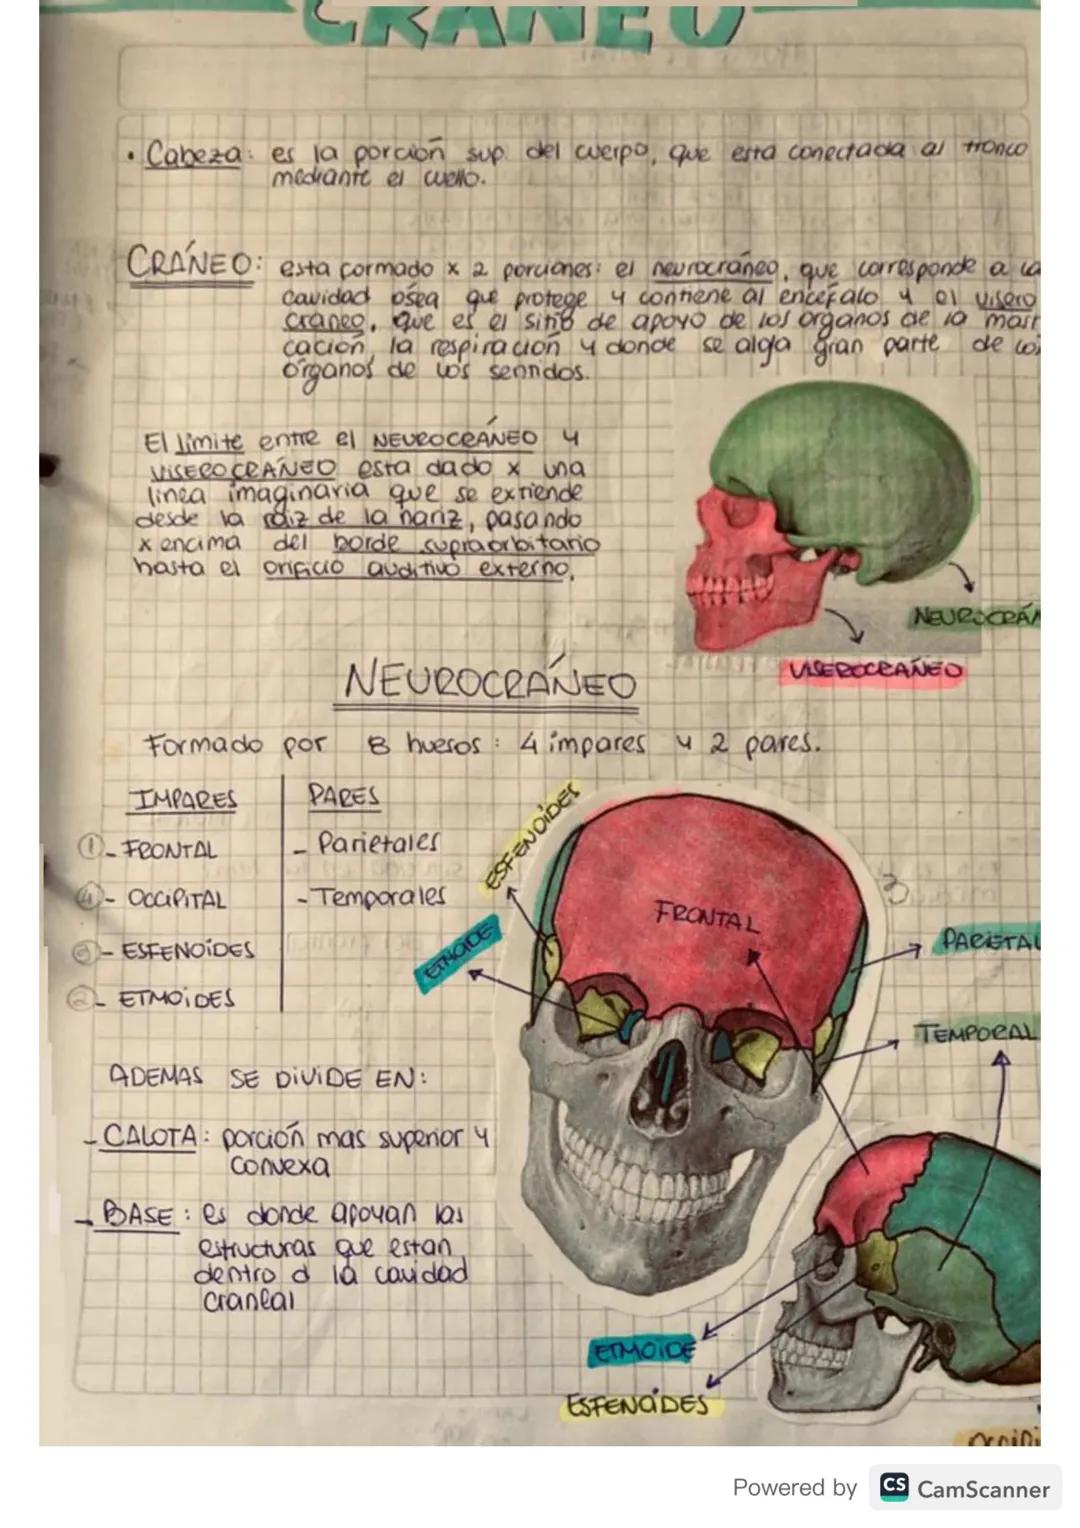 CRÁNEO
• Cabeza: es la porción sup. del cuerpo, que esta conectada al tronco
mediante el cuello.
CRÁNEO: esta formado x 2 porciones: el neurocráneo, que corresponde a la
cavidad ósea que protege y contiene al encéfalo y el visero
craneo, que es el sitio de apoyo de los organos de la mast
cación, la respiración y donde se alga gran parte de los
órganos de los sentidos.
El límite entre el NEUROCRÁNEO y
VISEROCRÁNEO esta dado x una
linea imaginaria que se extiende
desde la raíz de la nariz, pasando
x encima del borde supraorbitario
hasta el orificio auditivo externo.
NEUROCRÁN
VISEROCRÁNEO
NEUROCRÁNEO
Formado por 8 huesos: 4 impares y 2 pares.
IMPARES
PARES
① - FRONTAL
- Parietales
④ - OCCIPITAL
- Temporales
③ - ESFENOÍDES
② - ETMOÍDES
ESFENOÍDES
ETMOIDE
FRONTAL
PARIETAL
TEMPORAL
ADEMAS SE DIVIDE EN:
- CALOTA: porción mas superior y
convexa
- BASE: es donde apoyan las
estructuras que estan
dentro d la cavidad
craneal
ETMOIDE
ESFENOÍDES
occipi
Powered by CS CamScanner